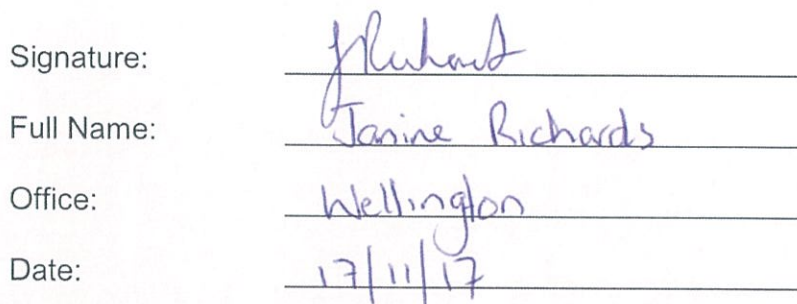 Signature: JRichards
Full Name: Janine Richards
Office: Wellington
Date: 17/11/17